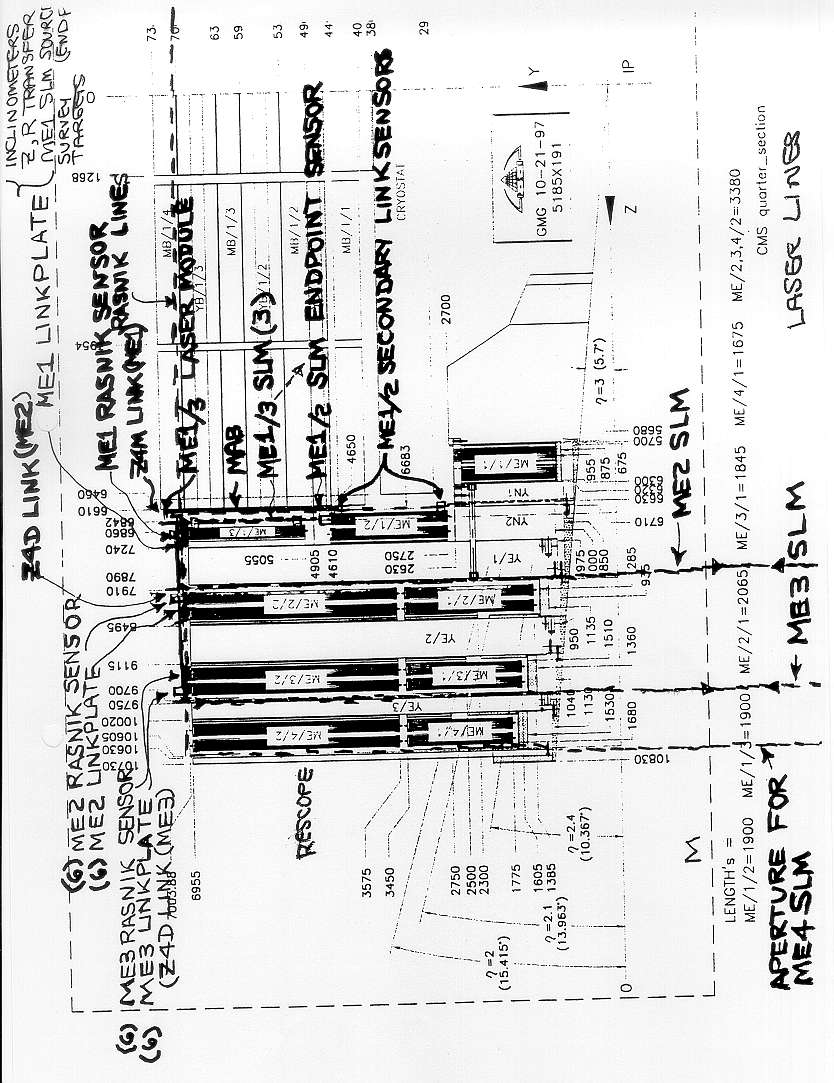 INCLINOMETERS
Z, R TRANSFER
ME1 SLM SOURC
SURVEY (ENDP
TARGETS
ME1 LINKPLATE
ME1 RASNIK SENSOR
Z4M LINK (ME1)
RASNIK LINES
ME1/3 LASER MODULE
MAB
ME1/3 SLM (3)
ME1/2 SLM ENDPOINT SENSOR
ME1/2 SECONDARY LINK SENSORS
Z4D LINK (ME2)
(6) ME2 RASNIK SENSOR
(6) ME2 LINKPLATE
(6) ME3 RASNIK SENSOR
(6) ME3 LINKPLATE
(Z4D LINK (ME3)
RESCOPE
73
70
63
59
53
49
44
40
38
29
0
1268
MB/1/4
YB/1/3
MB/1/3
MB/1/2
MB/1/1
CRYOSTAT
Y
IP
Z
GMG 10-21-97
5185X191
2700
4650
6683
η=3 (5.7°)
6450
6610
6842
6860
7240
7890
7910
8495
9115
9700
9750
10020
10605
10630
10730
6955
ME/1/3
ME/1/2
ME/1/1
YN1
YN2
YE/1
ME/2/2
ME/2/1
YE/2
ME/3/2
ME/3/1
YE/3
ME/4/2
ME/4/1
5055
4905
4610
2750
2630
5680
5700
6300
6320
6630
6710
955
875
675
975
1000
850
285
935
950
1135
1510
1360
1040
1130
1530
1680
10830
3575
3450
2750
2500
2300
1775
1605
1385
η=2
(15.415°)
η=2.1
(13.963°)
η=2.4
(10.367°)
0
M
LENGTH's =
ME/1/2=1900 ME/1/3=1900 ME/2/1=2065 ME/3/1=1845 ME/4/1=1675 ME/2,3,4/2=3380
CMS quarter_section
LASER LINES
ME2 SLM
ME3 SLM
APERTURE FOR
ME4 SLM